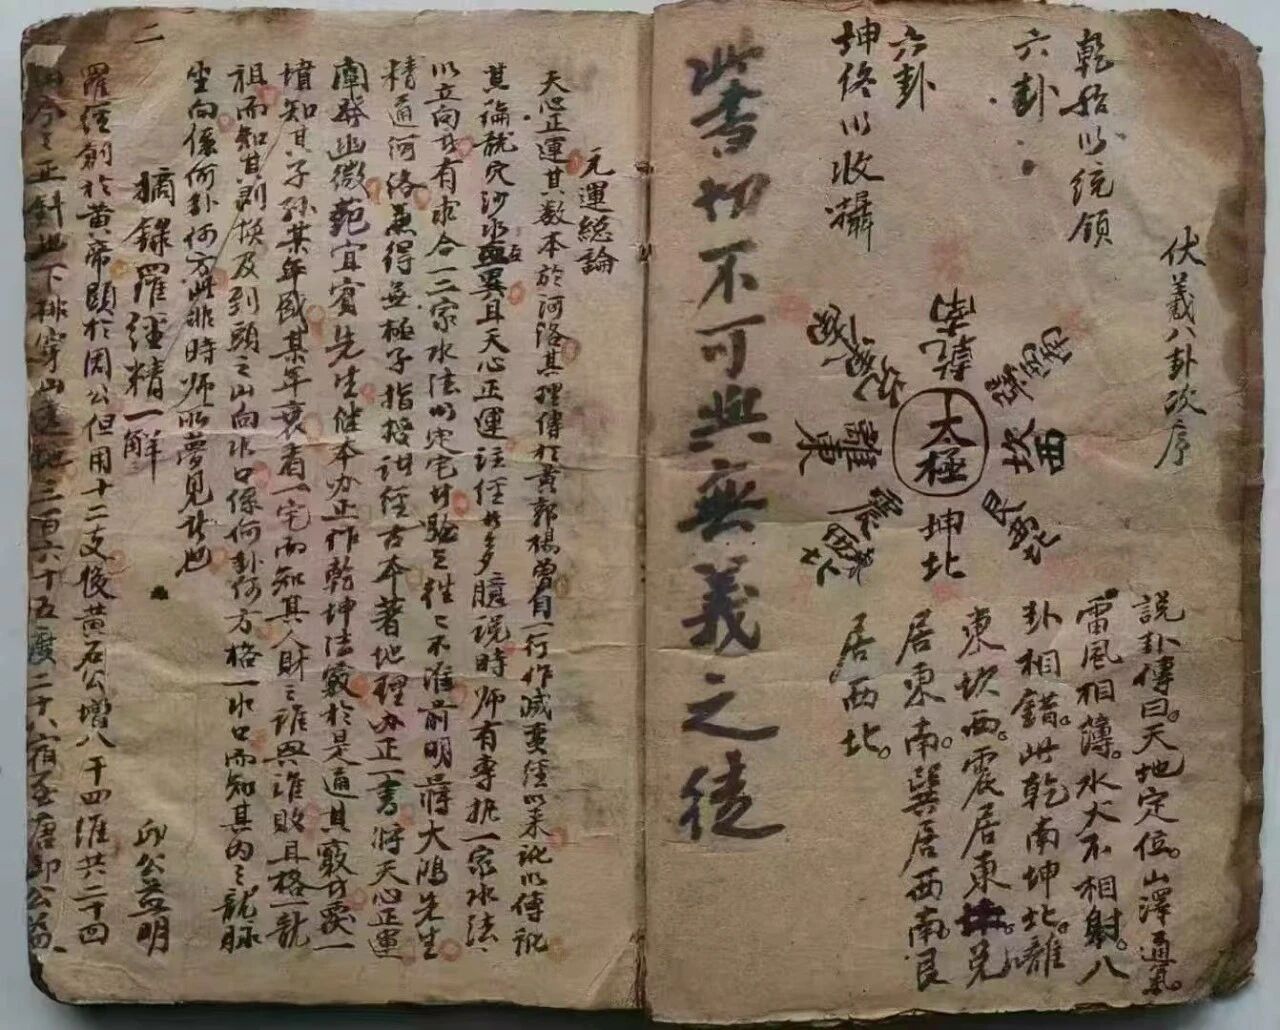 伏羲八卦次序
乾始以統領
六卦
坤终以收攝
六卦
南
乾
西南
巽
東南
兌
離
東
太極
坎
西
震
東北
艮
西北
坤
北
說卦傳曰。天地定位。山澤通氣。
雷風相薄。水火不相射。八
卦相錯。此乾南坤北。離
東坎西。震居東北兌
居東南。巽居西南。艮
居西北。
此書切不可與無義之徒
元運總論
天心正運其数本於河洛其理傳於黄郭楊曾自一行作滅蛮经以来訛以傳訛
其論龍穴沙水無異且天心正運註经者多臆說時師有專执一家水法
以立向者有求合一二家水法以定宅者驗之往々不准前明蔣大鴻先生
精通河洛兼得無極子指授註经古本著地理办正一書將天心正運
闡發幽微范宜賓先生继本办正作乾坤法竅於是通其竅者覆一
墳知其子孫某年盛某年衰者一宅而知其人財之誰興誰敗且格一龍
祖而知其剥换及到頭之山向水口係何卦何方格一水口而知其内之龍脉
坐向係何卦何方此非時師所夢見者也
摘錄羅经精一解
邱公益明
羅经創於黄帝顕於周公但用十二支後黄石公增八干四維共二十四
三百六十五度二十八宿至唐邱公益
二